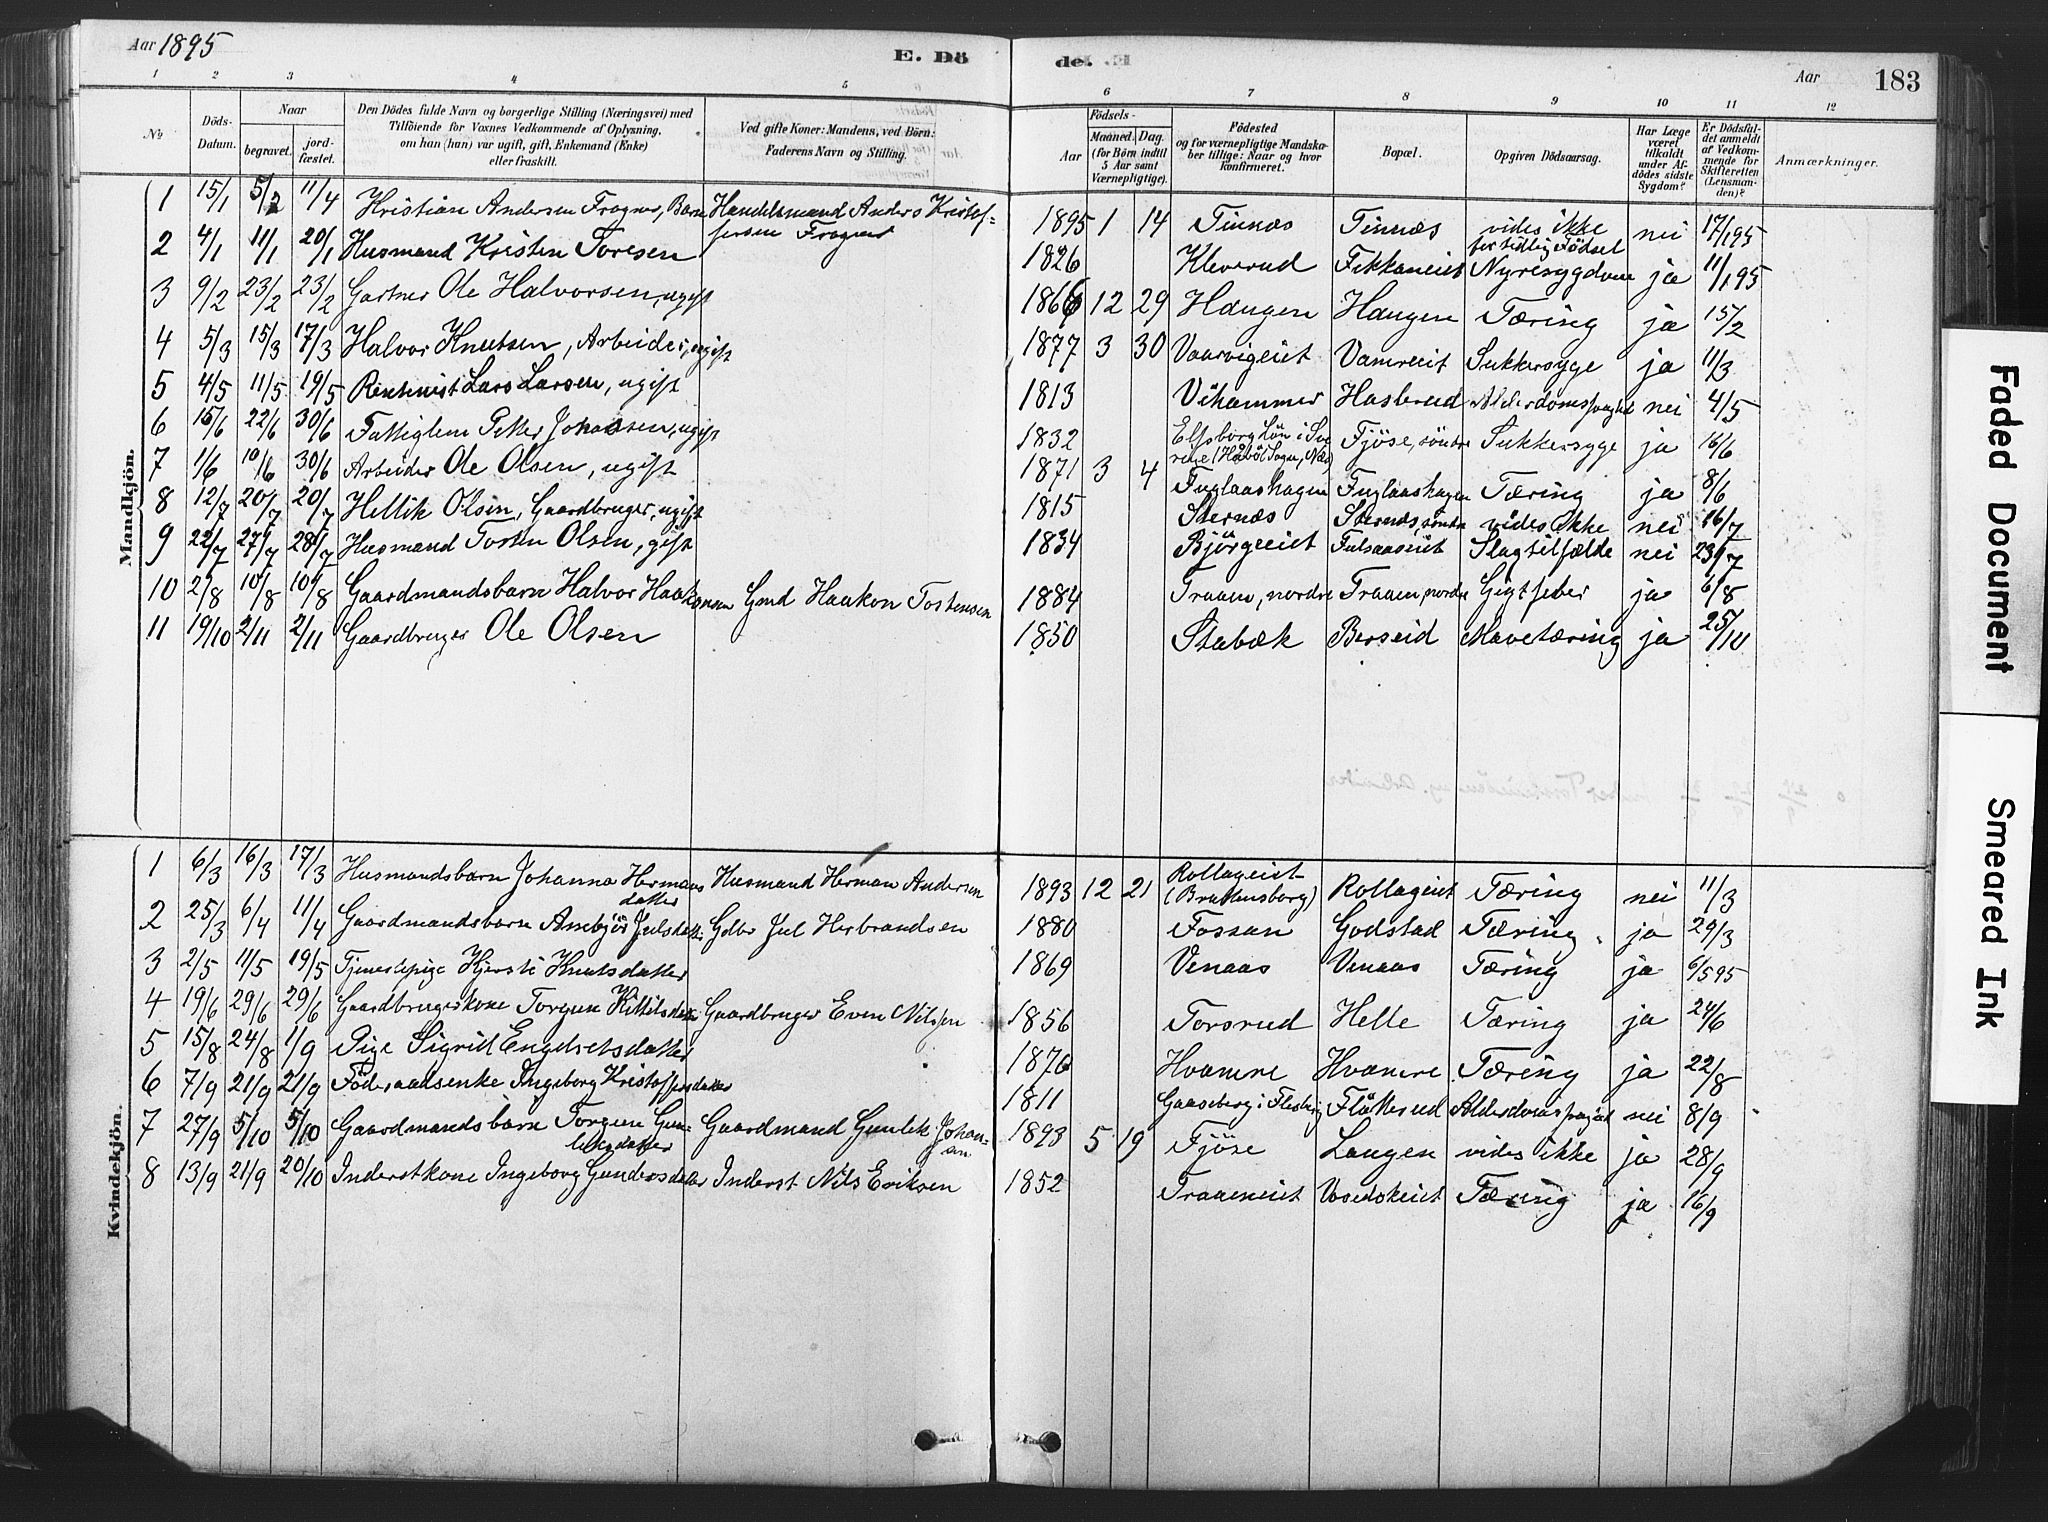 Aar 1895
E. Dö
de.
Aar
183
1 2 3 4 5 6 7 8 9 10 11 12
No
Döds-Datum.
Naar
begravet.
jord-fæstet.
Den Dödes fulde Navn og borgerlige Stilling (Næringsvei) med
Tilföiende for Voxnes Vedkommende af Oplysning,
om han (hun) var ugift, gift, Enkemand (Enke)
eller fraskilt.
Ved gifte Koner: Mandens, ved Börn:
Faderens Navn og Stilling.
Födsels-
Aar
Maaned. Dag.
(for Börn indtil
5 Aar samt
Værnepligtige).
Födested
og for værnepligtige Mandska-
ber tillige: Naar og hvor
konfirmeret.
Bopæl.
Opgiven Dödsaarsag.
Har Læge
været
tilkaldt
under Af-
dödes sidste
Sygdom?
Er Dödsfal-
det anmeldt
af Vedkom-
mende for
Skifteretten
(Lensman-
den)?
Anmærkninger.
Mandkjön.
1 15/1 5/2 11/4 Kristian Andersen Fragner, Barn Handelsmand Anders Kristof-
fersen Fragner 1895 1 14 Tinnæs Tinnæs vides ikke
for tidlig Födsel nei 17/1 95
2 4/1 11/1 20/1 Husmand Kristen Toresen 1826 Kleverud Fekkaneiet Nyresygdom ja 11/1 95
3 9/2 23/2 23/2 Gartner Ole Halvorsen, ugift 1866 12 29 Haugen Haugen Tæring ja 15/2
4 5/3 15/3 17/3 Halvor Knutsen, Arbeider, ugift 1877 3 30 Vaarvigeiet Vamreiet Sukkersyge ja 11/3
5 4/5 11/5 19/5 Rentenist Lars Larsen, ugift 1813 Vihammer Hasterud Alderdomssvaghed nei 4/5
6 15/6 22/6 30/6 Fattiglem Petter Johansen, ugift 1832 Elfsborg Län i Sve
rige (Håböl Sogn, Næs) Fjöse, söndre Sukkersyge ja 16/6
7 1/6 10/6 30/6 Arbeider Ole Olsen, ugift 1871 3 4 Fuglaashagen Fuglaashagen Tæring ja 8/6
8 12/7 20/7 20/7 Hellik Olsen, Gaardbruger, ugift 1815 Sternæs Sternæs, söndre vides ikke nei 16/7
9 22/7 27/7 28/7 Husmand Tosten Olsen, gift 1834 Björgeeiet Fulsaaseiet Slagtilfælde nei 23/7
10 2/8 10/8 10/8 Gaardmandsbarn Halvor Haakonsen Gmd Haakon Tostensen 1884 Traaen, nordre Traaen, nordre Gigtfeber ja 6/8
11 19/10 2/11 2/11 Gaardbruger Ole Olsen 1850 Stabæk Berseid Mavetæring ja 25/10
Kvindekjön.
1 6/3 16/3 17/3 Husmandsbarn Johanna Hermans
datter Husmand Herman Andersen 1893 12 21 Rollageiet
(Brattensborg) Rollageiet Tæring nei 11/3
2 25/3 6/4 11/4 Gaardmandsbarn Anebjör Julsdatter Gdbr Jul Herbrandsen 1880 Fossan Godstad Tæring ja 29/3
3 2/5 11/5 19/5 Tjenestepige Kjersti Knutsdatter 1869 Venaas Venaas Tæring ja 6/5 95
4 19/6 29/6 29/6 Gaardbrugerkone Torgun Kittilsdatter Gaardbruger Even Nilssen 1856 Torsrud Helle Tæring ja 24/6
5 15/8 24/8 1/9 Pige Sigrid Engebretsdatter 1876 Hvamre Hvamre Tæring ja 22/8
6 7/9 21/9 21/9 Föderaadsenke Ingeborg Kristoffersdatter 1811 Gaaseberg i Flesberg Flåtterud Alderdomssvaghed nei 8/9
7 27/9 5/10 5/10 Gaardmandsbarn Torgun Gun-
leksdatter Gaardmand Gunlek Johan-
sen 1893 5 19 Fjöse Langen vides ikke ja 28/9
8 13/9 21/9 20/10 Inderstkone Ingeborg Gundersdatter Inderst Nils Eriksen 1852 Traaeneiet Tæring ja 16/9
Faded Document
Smeared Ink